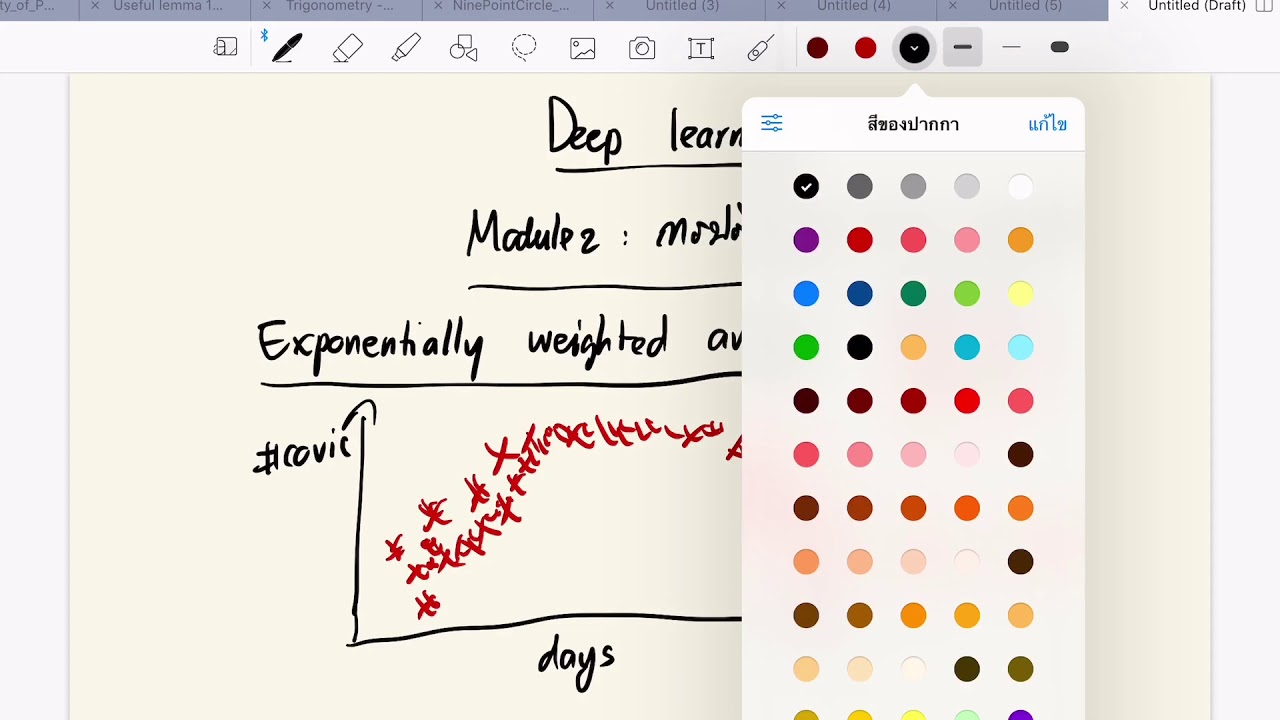 ty_of_P... × Useful lemma 1... × Trigonometry -... × NinePointCircle_... × Untitled (3) × Untitled (4) × Untitled (5) × Untitled (Draft)
สีของปากกา แก้ไข
Deep learn
Module 2 : การปรั
Exponentially weighted av
#covic
days